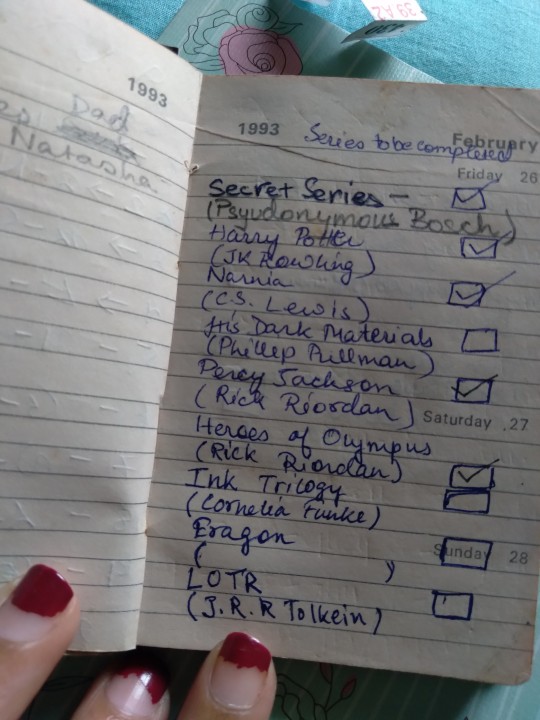 39 A2
1993
Dad
Natasha
1993 February
Series to be completed
Friday 26
Secret Series -
(Psyudonymous Bosch)
Harry Potter
(JK Rowling)
Narnia
(C.S. Lewis)
His Dark Materials
(Phillep Pullman)
Percy Jackson
(Rick Riordan)
Saturday 27
Heroes of Olympus
(Rick Riordan)
Ink Trilogy
(Cornelia Funke)
Eragon
( )
Sunday 28
LOTR
(J.R.R Tolkein)